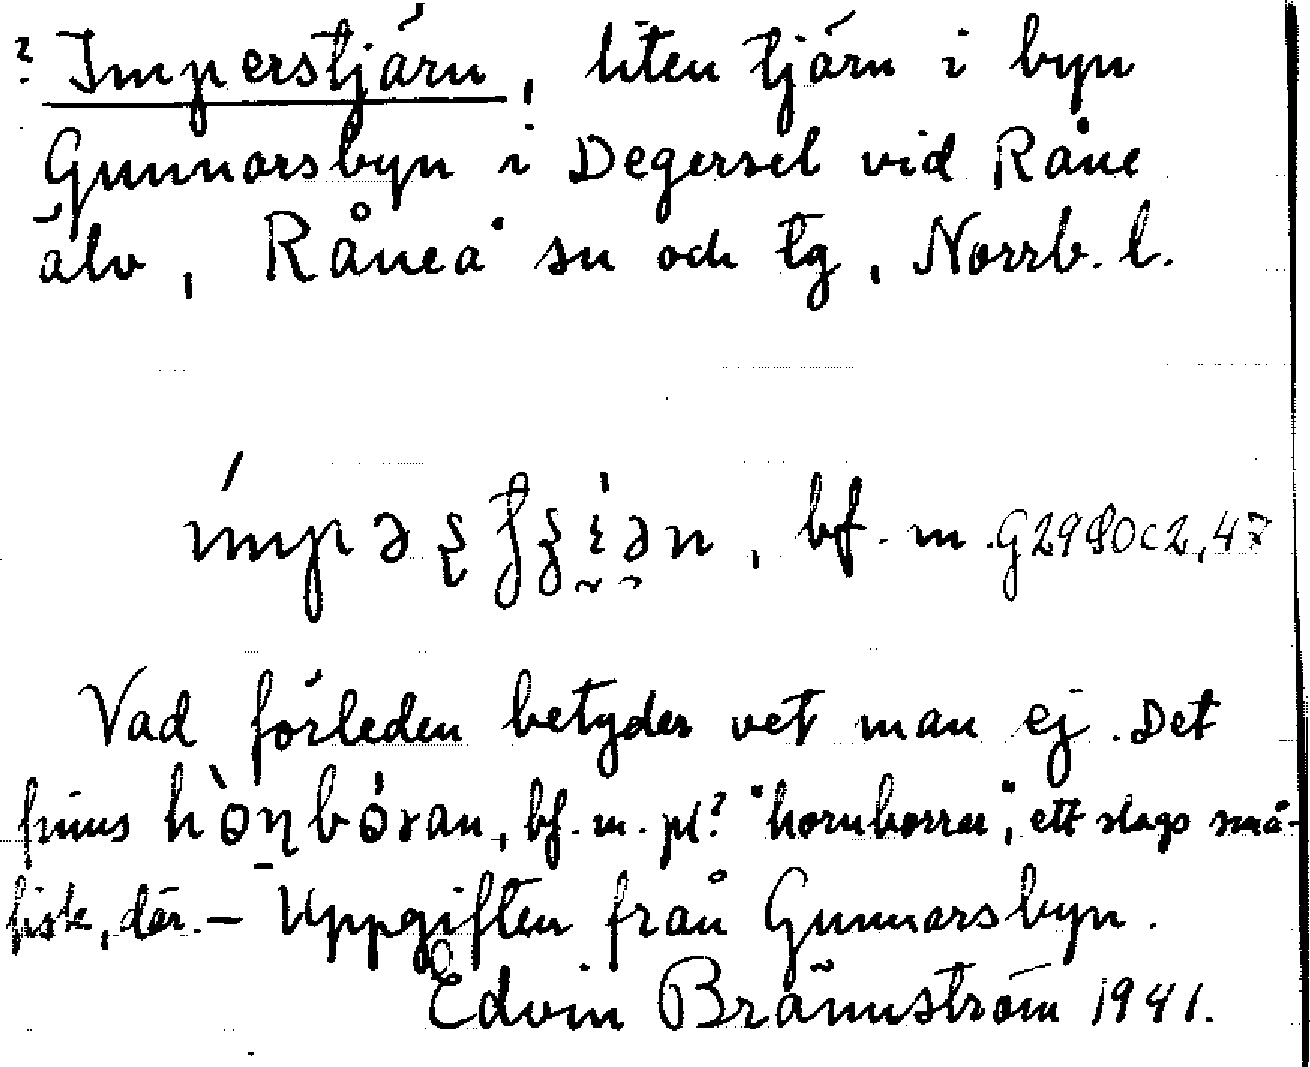 ? Imperstjärn, liten tjärn i byn
Gunnarsbyn i Degersel vid Råne
älv, Råneå sn och tg, Norrb. l.
bf. m. G2980c2,47
Vad förleden betyder vet man ej. Det
finns bf. m. pl? "hornborrar", ett slags små-
fisk, där. – Uppgiften från Gunnarsbyn.
Edvin Brännström 1941.